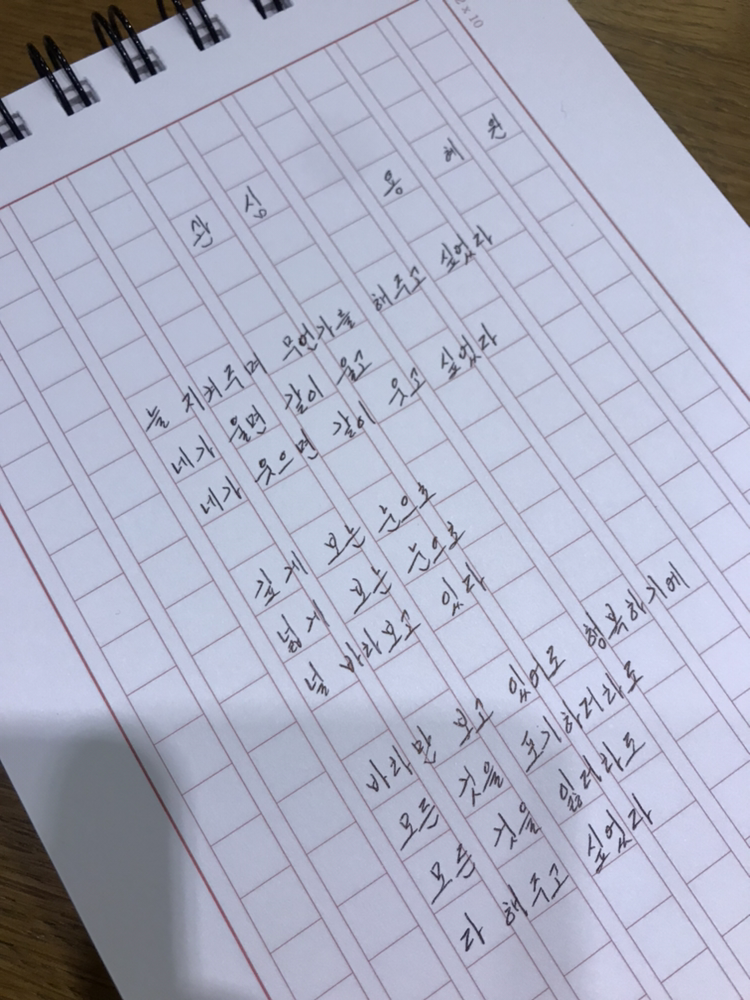 8 x 10
관심 용혜원
늘 지켜주며 무언가를 해주고 싶었다
네가 울면 같이 울고
네가 웃으면 같이 웃고 싶었다
깊게 보는 눈으로
넓게 보는 눈으로
널 바라보고 있다
바라만 보고 있어도 행복하기에
모든 것을 포기하더라도
모든 것을 잃더라도
다 해주고 싶었다